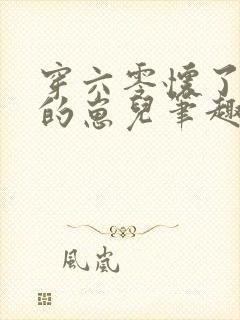 穿六零懷了
的崽兒筆趣
風嵐